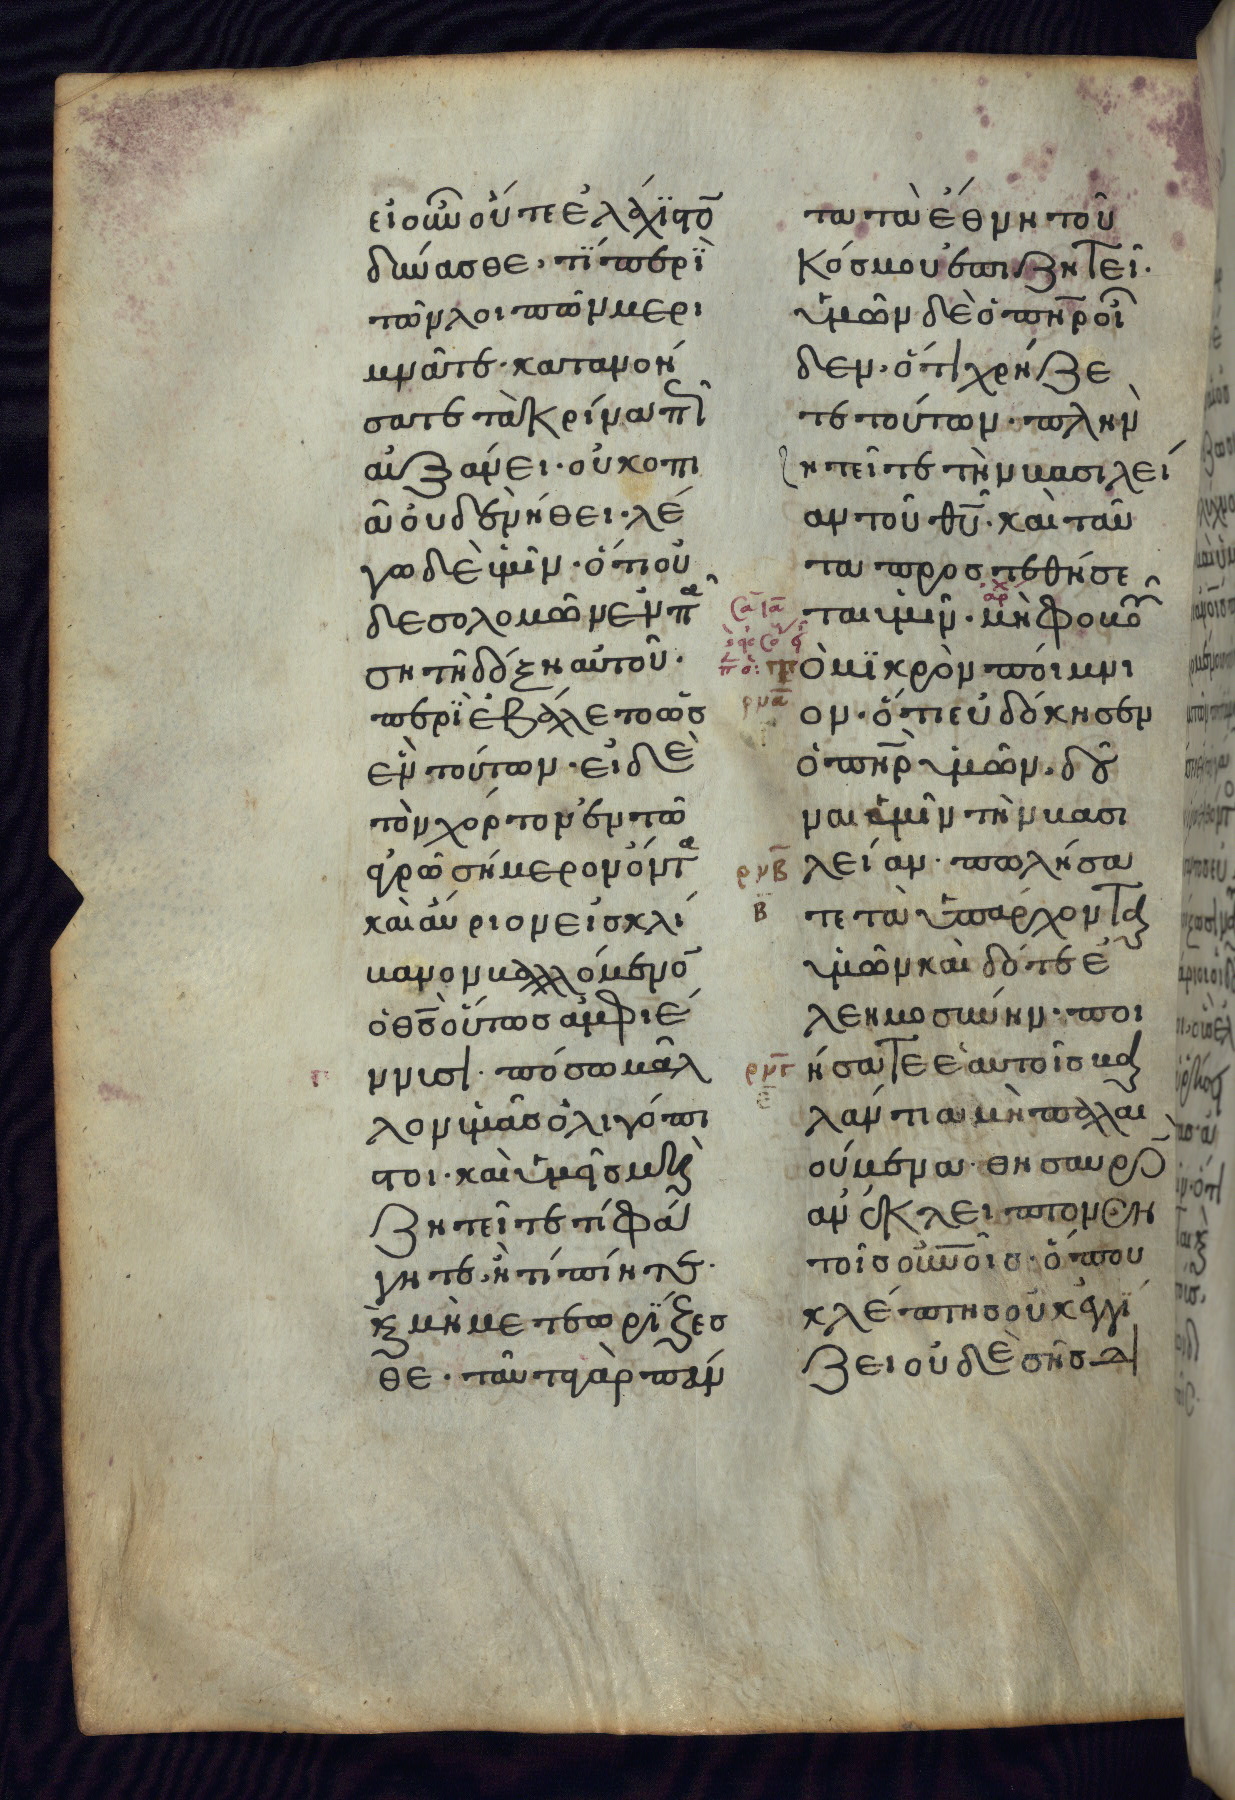 εἰ οὖν οὔτε ἐλάχιστο̄
δύνασθε· τί περὶ
τῶν λοιπῶν μερι
μνᾶτε· κατανοή
σατε τὰ κρίνα πῶς
αὐξάνει· οὐ κοπι
ᾶ οὐδὲ νήθει· λέ
γω δὲ ὑμῖν· ὅτι οὐ
δὲ σολομῶν ἐν πά
ση τῆ δόξη αὐτοῦ·
περιεβάλετο ὡς
ἓν τούτων· εἰ δὲ
τὸν χόρτον ἐν τῶ
ἀγρῶ σήμερον ὄντα
καὶ αὔριον εἰς κλί
βανον βαλλόμενο̄
ὁ θ̄ς̄ οὕτως ἀμφιέ
ννυσι· πόσω μᾶλ
λον ὑμᾶς ὀλιγόπι
στοι· καὶ ὑμεῖς μὴ
ζητεῖτε τί φά
γητε· ἢ τί πίητε·
κ̀ μὴ μετεωρίζεσ
θε· ταῦτα γὰρ πάν
τα τὰ ἔθνη τοῦ
κόσμου ἐπιζητεῖ·
ὑμῶν δὲ ὁ π̄η̄ρ̄ οἶ
δεν· ὅτι χρήζε
τε τούτων· πλὴν
ζητεῖτε τὴν βασιλεί
αν τοῦ θ̄ῡ· καὶ ταῦ
τα προστεθήσε
ται ὑμῖν· μὴ φοβοῦ
τὸ μικρὸν ποίμνι
ρ̄ν̄ᾱ
ον· ὅτι εὐδόκησεν
ὁ π̄η̄ρ̄ ὑμῶν· δοῦ
ναι ὑμῖν τὴν βασι
ρ̄ν̄β̄
λείαν· πωλήσα
β
τε τὰ ὑπάρχοντα
ὑμῶν καὶ δότε ἐ
λεημοσύνην· ποι
ρ̄ν̄γ̄
ήσατε ἑαυτοῖς βαλ
ε
λάντια μὴ παλαι
ούμενα· θησαυρὸ̄
ἀνέκλειπτον ἐν
τοῖς οὐ̄ν̄οῖς· ὅπου
κλέπτης οὐκ ἐγγί
ζει οὐδὲ σὴς δι